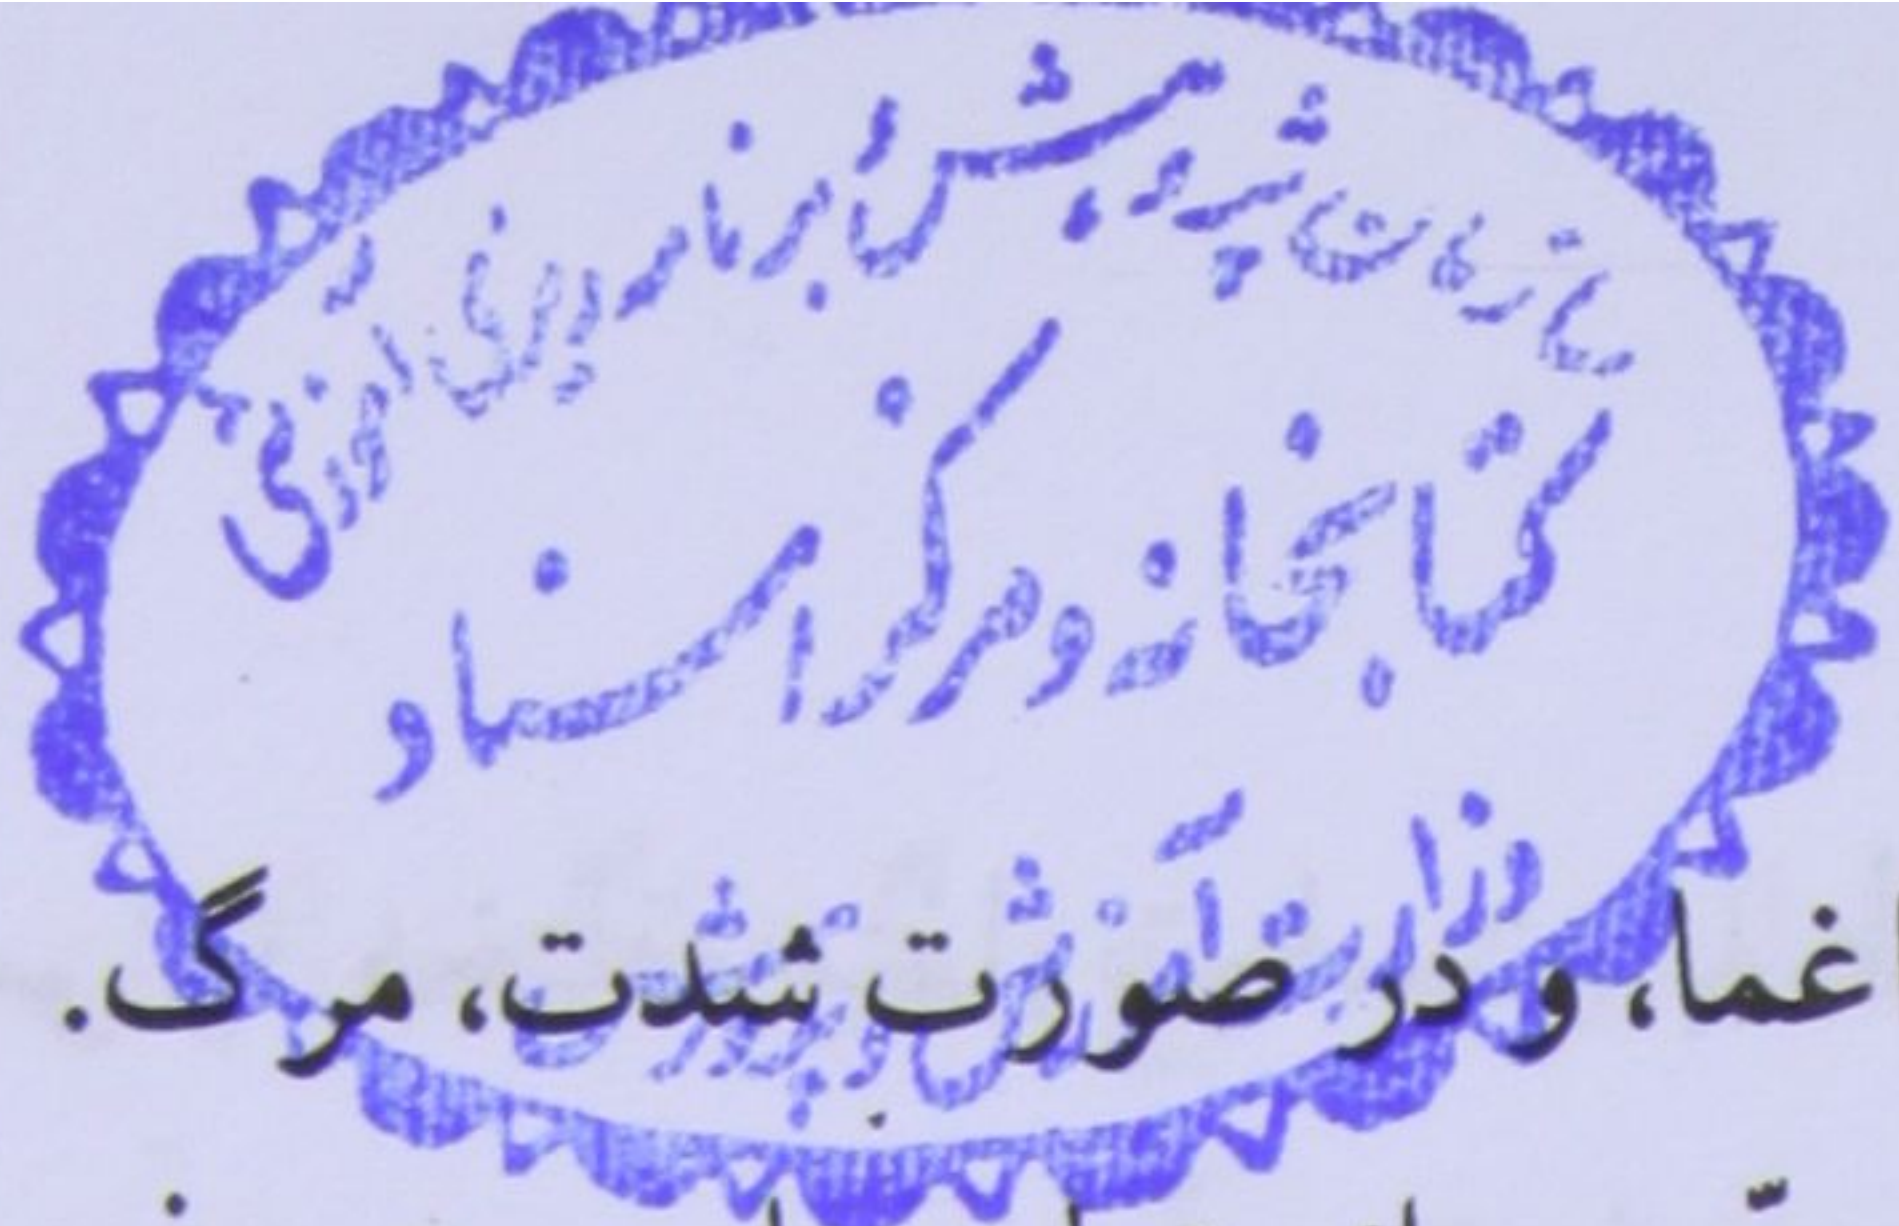 سازمان پژوهش و برنامه ریزی آموزشی
کتابخانه و مرکز اسناد
وزارت آموزش و پرورش
اغما، و در صورت شدت، مرگ.